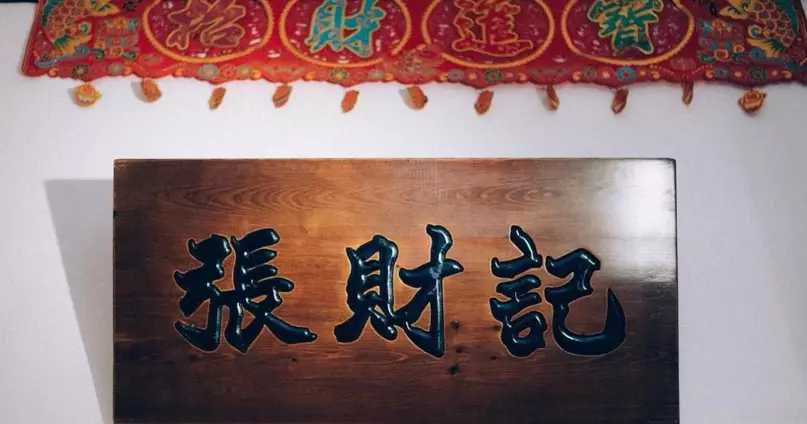 招財進寶
張財記